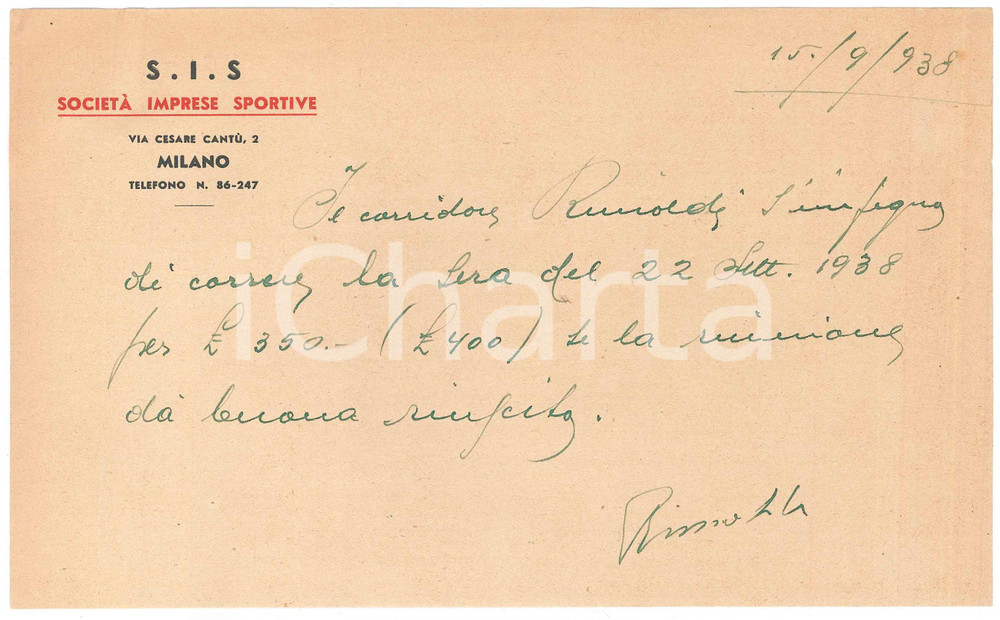 S.I.S
SOCIETÀ IMPRESE SPORTIVE
VIA CESARE CANTÙ, 2
MILANO
TELEFONO N. 86-247
15./9/938
Il corridore Rimoldi s'impegna
di correre la sera del 22 Sett. 1938
per £ 350.- (£ 400) se la riunione
dà buona riuscita.
Rimoldi
iCharta